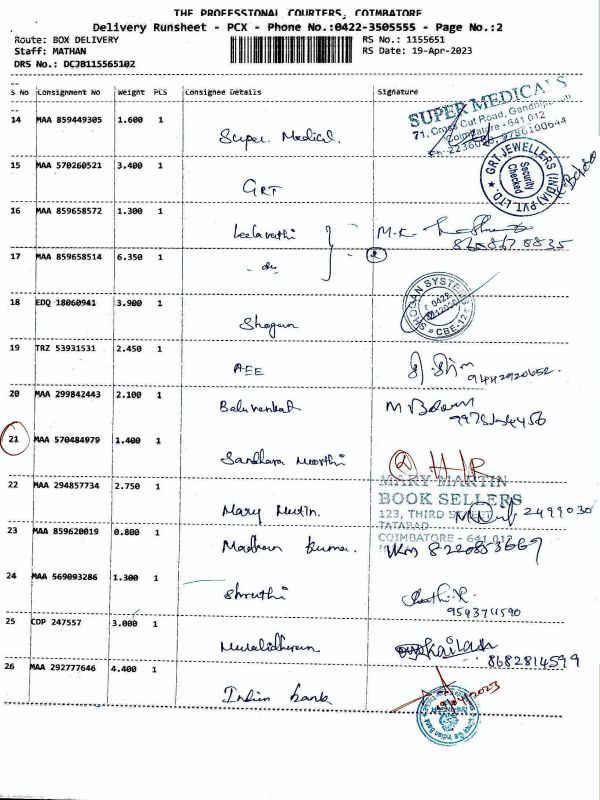 THE PROFESSIONAL COURIERS, COIMBATORE
Delivery Runsheet - PCX - Phone No.:0422-3505555 - Page No.:2
Route: BOX DELIVERY
RS No.: 1155651
Staff: MATHAN
RS Date: 19-Apr-2023
DRS No.: DCJB115565102
S No Consignment No Weight PCS Consignee Details Signature
14 MAA 859449305 1.600 1 Super Medical
SUPER MEDICALS
71, Cross Cut Road, Gandhipuram
Coimbatore - 641 012
15 MAA 570260521 3.400 1 GRT
GRT JEWELLERS (INDIA) PVT. LTD.
Security
Checked
16 MAA 859658572 1.300 1 Leelavathi M.K
17 MAA 859658514 6.350 1 - do 2
8658678835
18 EDQ 18060941 3.900 1 Shogun
SHOGAN SYSTEMS
0422
CBE-12
19 TRZ 53931531 2.450 1 AEE
9442920652
20 MAA 299842443 2.100 1 Balu Venkat M
21 MAA 570484979 1.400 1 Sandhara Moorthi
22 MAA 294857734 2.750 1 Mary Mutin
MARY MARTIN
BOOK SELLERS
123, THIRD STREET
TATABAD
COIMBATORE - 641 012
2499030
23 MAA 859620019 0.800 1 Madhan Kumar 8220853669
24 MAA 569093286 1.300 1 Shruthi
9543711590
25 CDP 247557 3.000 1 Muralidharan Kailash
8682814599
26 MAA 292777646 4.400 1 Indian bank